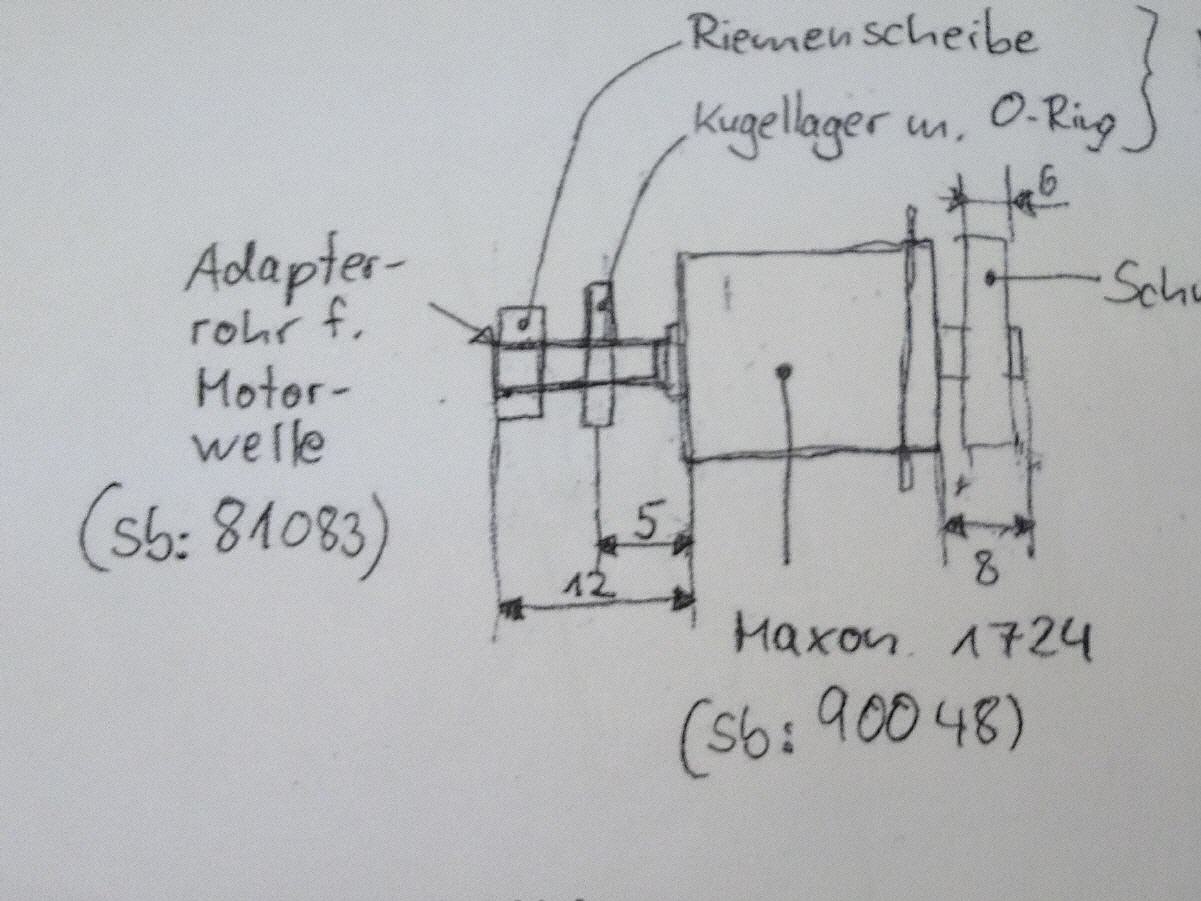 Riemenscheibe
Kugellager m. O-Ring
6
Adapter-
rohr f.
Motor-
welle
(Sb: 81083)
5
12
8
Maxon 1724
(Sb: 90048)